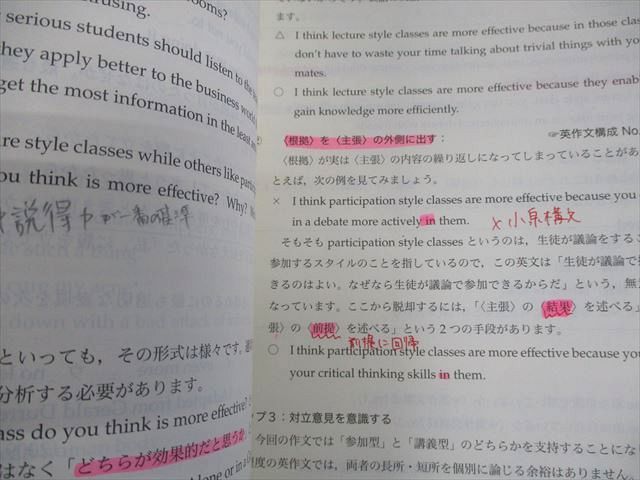 ooms?
rusing.
serious students should listen to the
they apply better to the business world
get the most information in the least
re style classes while others like
ou think is more effective? Why?
説得力が一番の基準
といっても，その形式は様々です．
分析する必要があります．
ass do you think is more effective?
はなく「どちらが効果的だと思うか
ます．
△ I think lecture style classes are more effective because in those clas
don't have to waste your time talking about trivial things with you
mates.
○ I think lecture style classes are more effective because they enab
gain knowledge more efficiently.
〈根拠〉を〈主張〉の外側に出す：
☞英作文構成 No
〈根拠〉が実は〈主張〉の内容の繰り返しになってしまっていることがあ
とえば，次の例を見てみましょう．
× I think participation style classes are more effective because you
in a debate more actively in them.
× 小泉構文
そもそも participation style classes というのは，生徒が議論をするこ
参加するスタイルのことを指しているので，この英文は「生徒が議論で
きるのはよい．なぜなら生徒が議論で参加できるからだ」という，無
なっています．ここから脱却するには，「〈主張〉の〈結果〉を述べる」
張〉の〈前提〉を述べる」という 2 つの手段があります．
前提に回帰
○ I think participation style classes are more effective because you
your critical thinking skills in them.
プ 3：対立意見を意識する
今回の作文では「参加型」と「講義型」のどちらかを支持することにな
程度の英作文では，両者の長所・短所を個別に論じる余裕はありません．